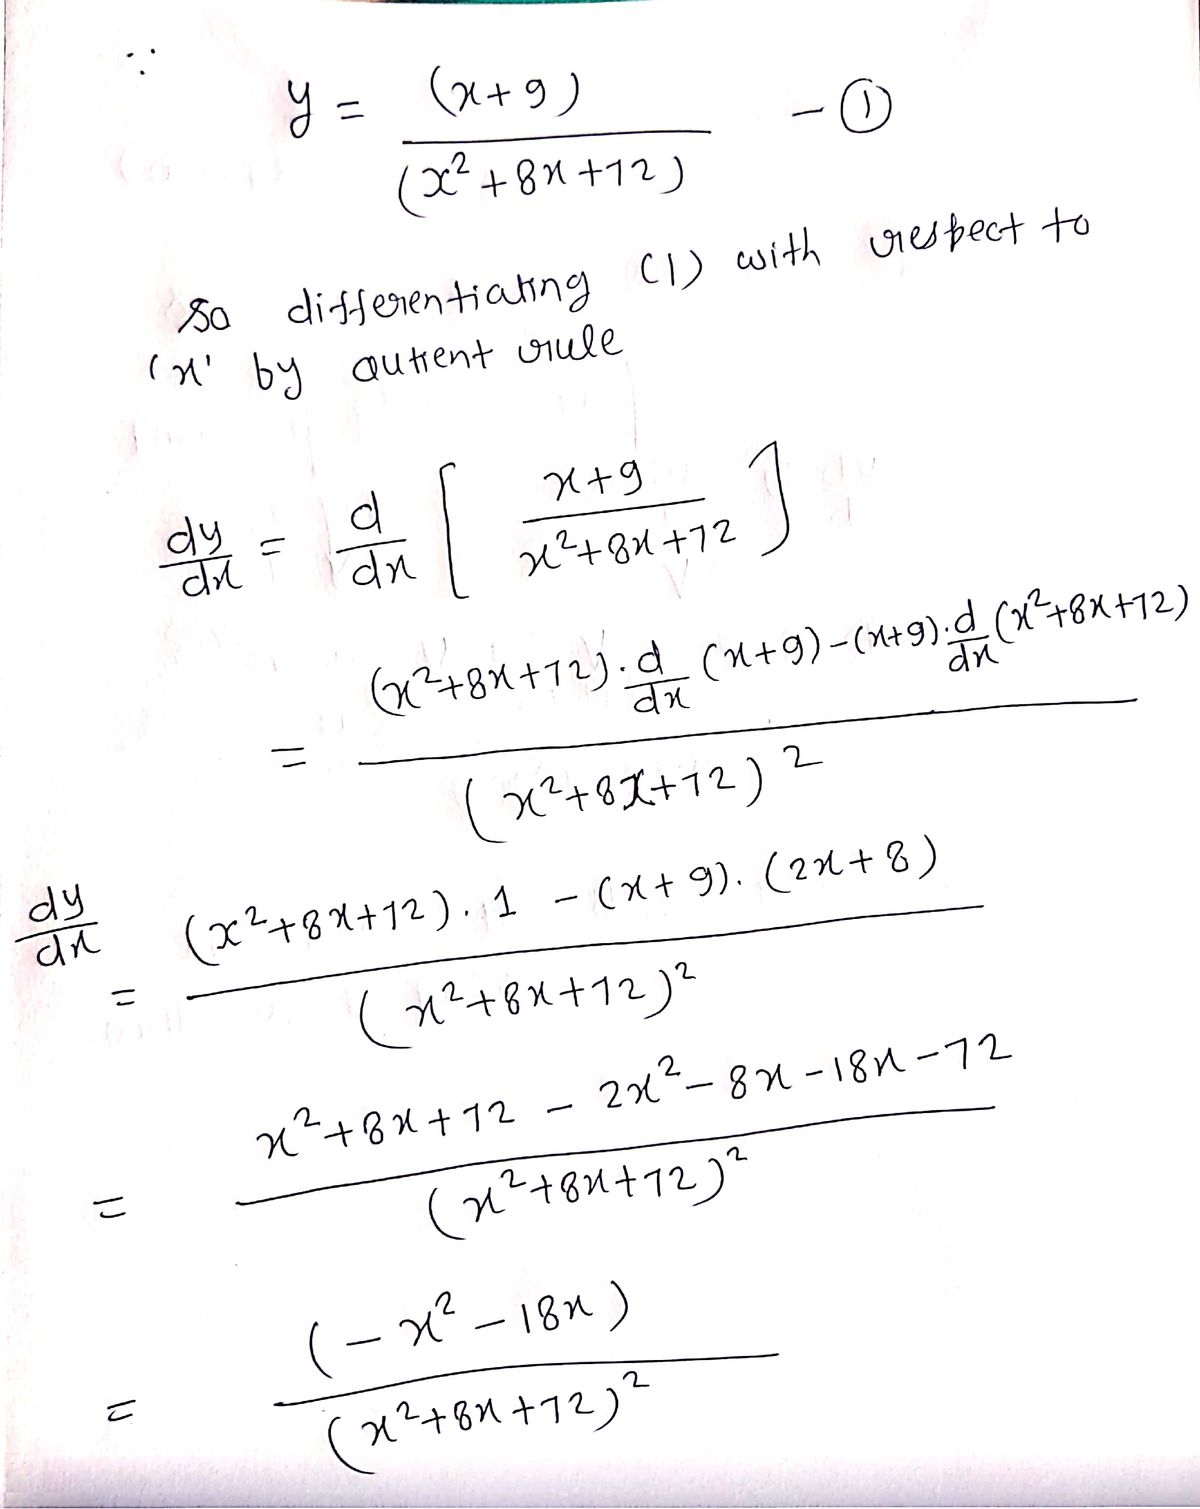 ∵
y = (x+9) / (x²+8x+72) - ①
So differentiating (1) with respect to
'x' by Qutient rule
dy/dx = d/dx [ x+9 / x²+8x+72 ]
= (x²+8x+72)·d/dx (x+9)-(x+9)·d/dx (x²+8x+72) / (x²+8x+72)²
dy/dx = (x²+8x+72)·1 - (x+9)·(2x+8) / (x²+8x+72)²
= x²+8x+72 - 2x²-8x-18x-72 / (x²+8x+72)²
= (-x²-18x) / (x²+8x+72)²